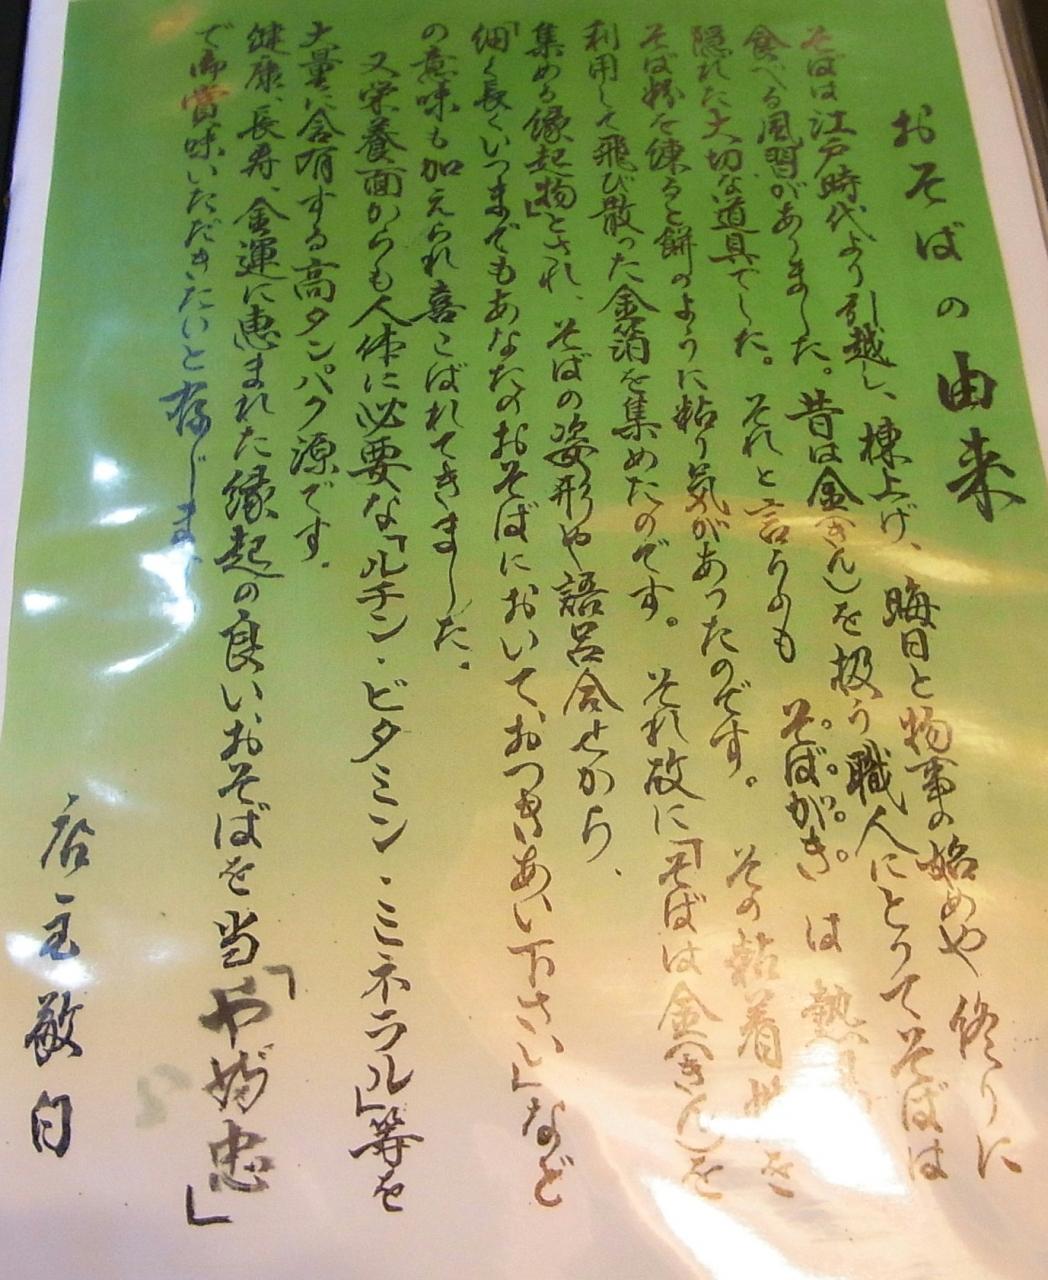 おそばの由来
そばは江戸時代より引越し、棟上げ、晦日と物事の始めや終りに
食べる風習がありました。昔は金(きん)を扱う職人にとってそばは
隠れた大切な道具でした。それと言うのもそばがきは熱
そば粉を練ると餅のように粘り気があったのです。その粘着を
利用して飛び散った金箔を集めたのです。それ故に「そばは金(きん)を
集める縁起物」とされ、そばの姿形や語呂合せから、
「細く長くいつまでもあなたのおそばにおいて、おつきあい下さい」など
の意味も加えられ喜こばれてきました。
又栄養面からも人体に必要な「ルチン・ビタミン・ミネラル」等を
大量に含有する高タンパク源です。
健康、長寿、金運に恵まれた縁起の良いおそばを当「や満忠」
で御賞味いただきたいと存じま
店主敬白